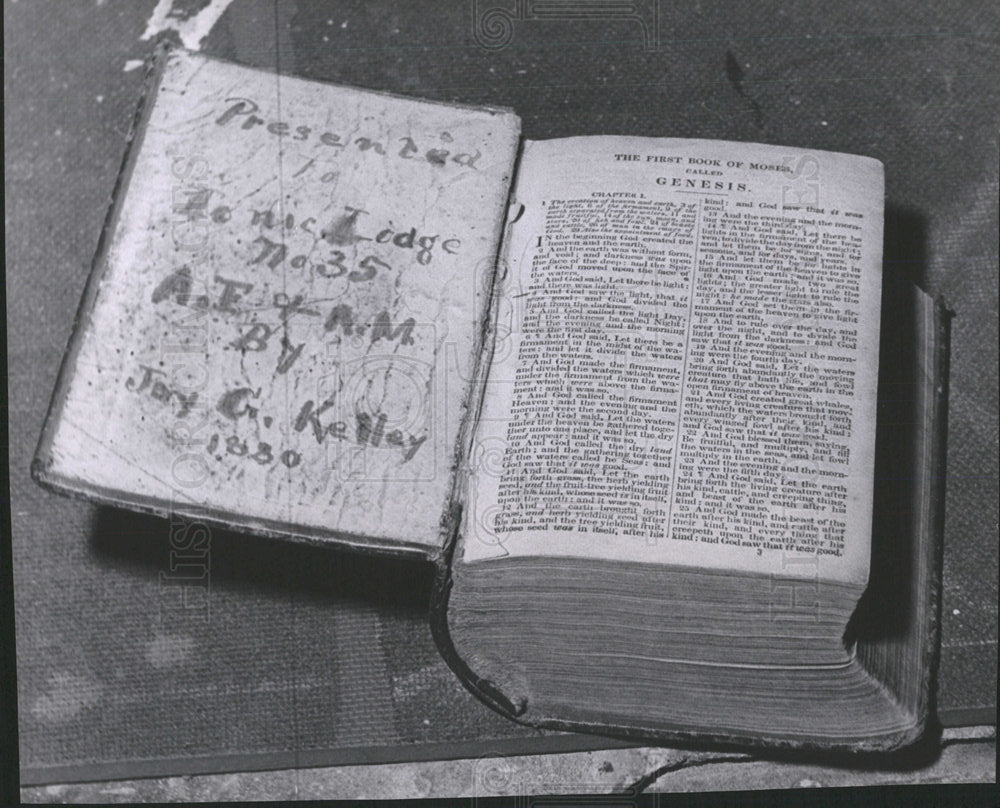 Presented
to
Lodge
No 35
A. F. & A. M.
By
G. Kelley
1880
THE FIRST BOOK OF MOSES,
CALLED
GENESIS.
CHAPTER I.
1 The creation of heaven and earth, 3 of
the light, 6 of the firmament, 9 of the
earth separated from the waters, 11 and
made fruitful, 14 of the sun, moon, and
stars, 20 of fish and fowl, 24 of beasts
and cattle, 26 of man in the image of
God. 29 Also the appointment of food.
IN the beginning God created the
heaven and the earth.
2 And the earth was without form,
and void; and darkness was upon
the face of the deep: and the Spir-
it of God moved upon the face of
the waters.
3 And God said, Let there be light:
and there was light.
4 And God saw the light, that it
was good: and God divided the
light from the darkness.
5 And God called the light Day,
and the darkness he called Night:
and the evening and the morning
were the first day.
6 ¶ And God said, Let there be a
firmament in the midst of the wa-
ters: and let it divide the waters
from the waters.
7 And God made the firmament,
and divided the waters which were
under the firmament from the wa-
ters which were above the firma-
ment: and it was so.
8 And God called the firmament
Heaven: and the evening and the
morning were the second day.
9 ¶ And God said, Let the waters
under the heaven be gathered toge-
ther unto one place, and let the dry
land appear: and it was so.
10 And God called the dry land
Earth; and the gathering together
of the waters called he Seas: and
God saw that it was good.
11 And God said, Let the earth
bring forth grass, the herb yielding
seed, and the fruit tree yielding fruit
after his kind, whose seed is in itself,
upon the earth: and it was so.
12 And the earth brought forth
grass, and herb yielding seed after
his kind, and the tree yielding fruit,
whose seed was in itself, after his
kind: and God saw that it was
good.
13 And the evening and the morn-
ing were the third day.
14 ¶ And God said, Let there be
lights in the firmament of the hea-
ven, to divide the day from the night;
and let them be for signs, and for
seasons, and for days, and years.
15 And let them be for lights in
the firmament of the heaven to give
light upon the earth: and it was so.
16 And God made two great
lights; the greater light to rule the
day, and the lesser light to rule the
night: he made the stars also.
17 And God set them in the fir-
mament of the heaven to give light
upon the earth,
18 And to rule over the day, and
over the night, and to divide the
light from the darkness: and God
saw that it was good.
19 And the evening and the morn-
ing were the fourth day.
20 And God said, Let the waters
bring forth abundantly the moving
creature that hath life, and fowl
that may fly above the earth in the
open firmament of heaven.
21 And God created great whales,
and every living creature that mov-
eth, which the waters brought forth
abundantly after their kind, and
every winged fowl after his kind:
and God saw that it was good.
22 And God blessed them, saying,
Be fruitful, and multiply, and fill
the waters in the seas, and let fowl
multiply in the earth.
23 And the evening and the morn-
ing were the fifth day.
24 ¶ And God said, Let the earth
bring forth the living creature after
his kind, cattle, and creeping thing,
and beast of the earth after his
kind: and it was so.
25 And God made the beast of the
earth after his kind, and cattle after
their kind, and every thing that
creepeth upon the earth after his
kind: and God saw that it was good.
3